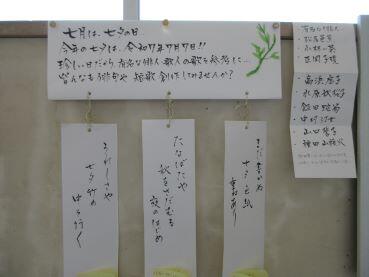 七月は、七夕の日
今年の七夕は、令和7年7月7日!!
珍しい日だから、有名な俳人、歌人の歌を参考にして…
皆んなも俳句や短歌創作してみませんか?
・松尾芭蕉
・小林一茶
・正岡子規
・高浜虚子
・水原秋桜子
・飯田蛇笏
・中村汀女
・山口誓子
・種田山頭火
まだ書かぬ
七夕色紙
重ねあり
たなばたや
秋をさだむる
夜のはじめ
うれしさや
七夕竹の
中を行く